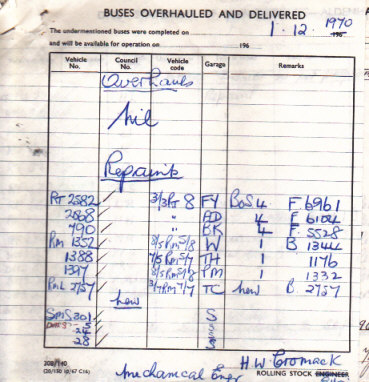 BUSES OVERHAULED AND DELIVERED
The undermentioned buses were completed on 1.12.1970 196
and will be available for operation on 196
Vehicle No. Council No. Vehicle code Garage Remarks
Overhauls
Nil
Repaints
RT 2582 3/3RT 8 FY BoS 4 F.6961
2868 " AD 4 F 6104
790 " BK 4 F. 5528
RM 1352 W 1 B 1344
1388 TH 1 1176
1397 PM 1 1332
RML 2757 TC New B. 2757
New
SMS 301 S
28
208/140
(28/150 ip/67 C16)
H.W. Cromack
Mechanical Engr ROLLING STOCK ENGINEER